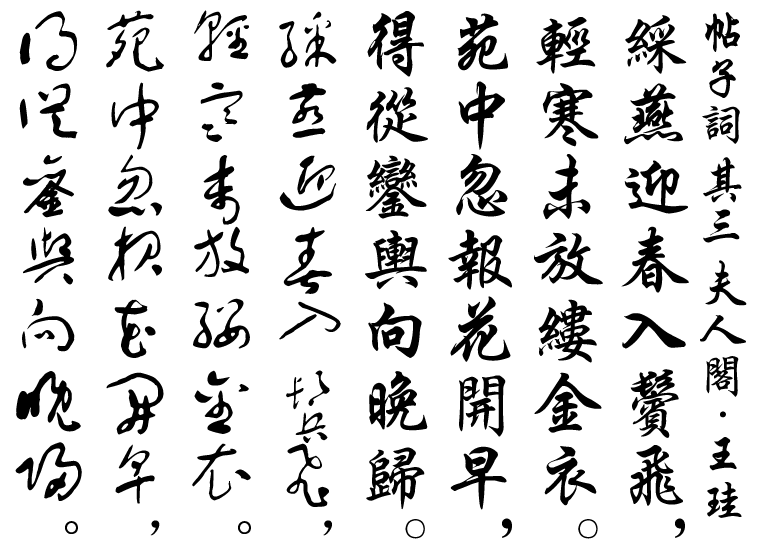 帖子詞 其三 夫人閣·王珪
綵燕迎春入鬢飛，
輕寒未放縷金衣。
苑中忽報花開早，
得從鑾輿向晚歸。
綵燕迎春入鬢飛，
輕寒未放縷金衣。
苑中忽報花開早，
得從鑾輿向晚歸。